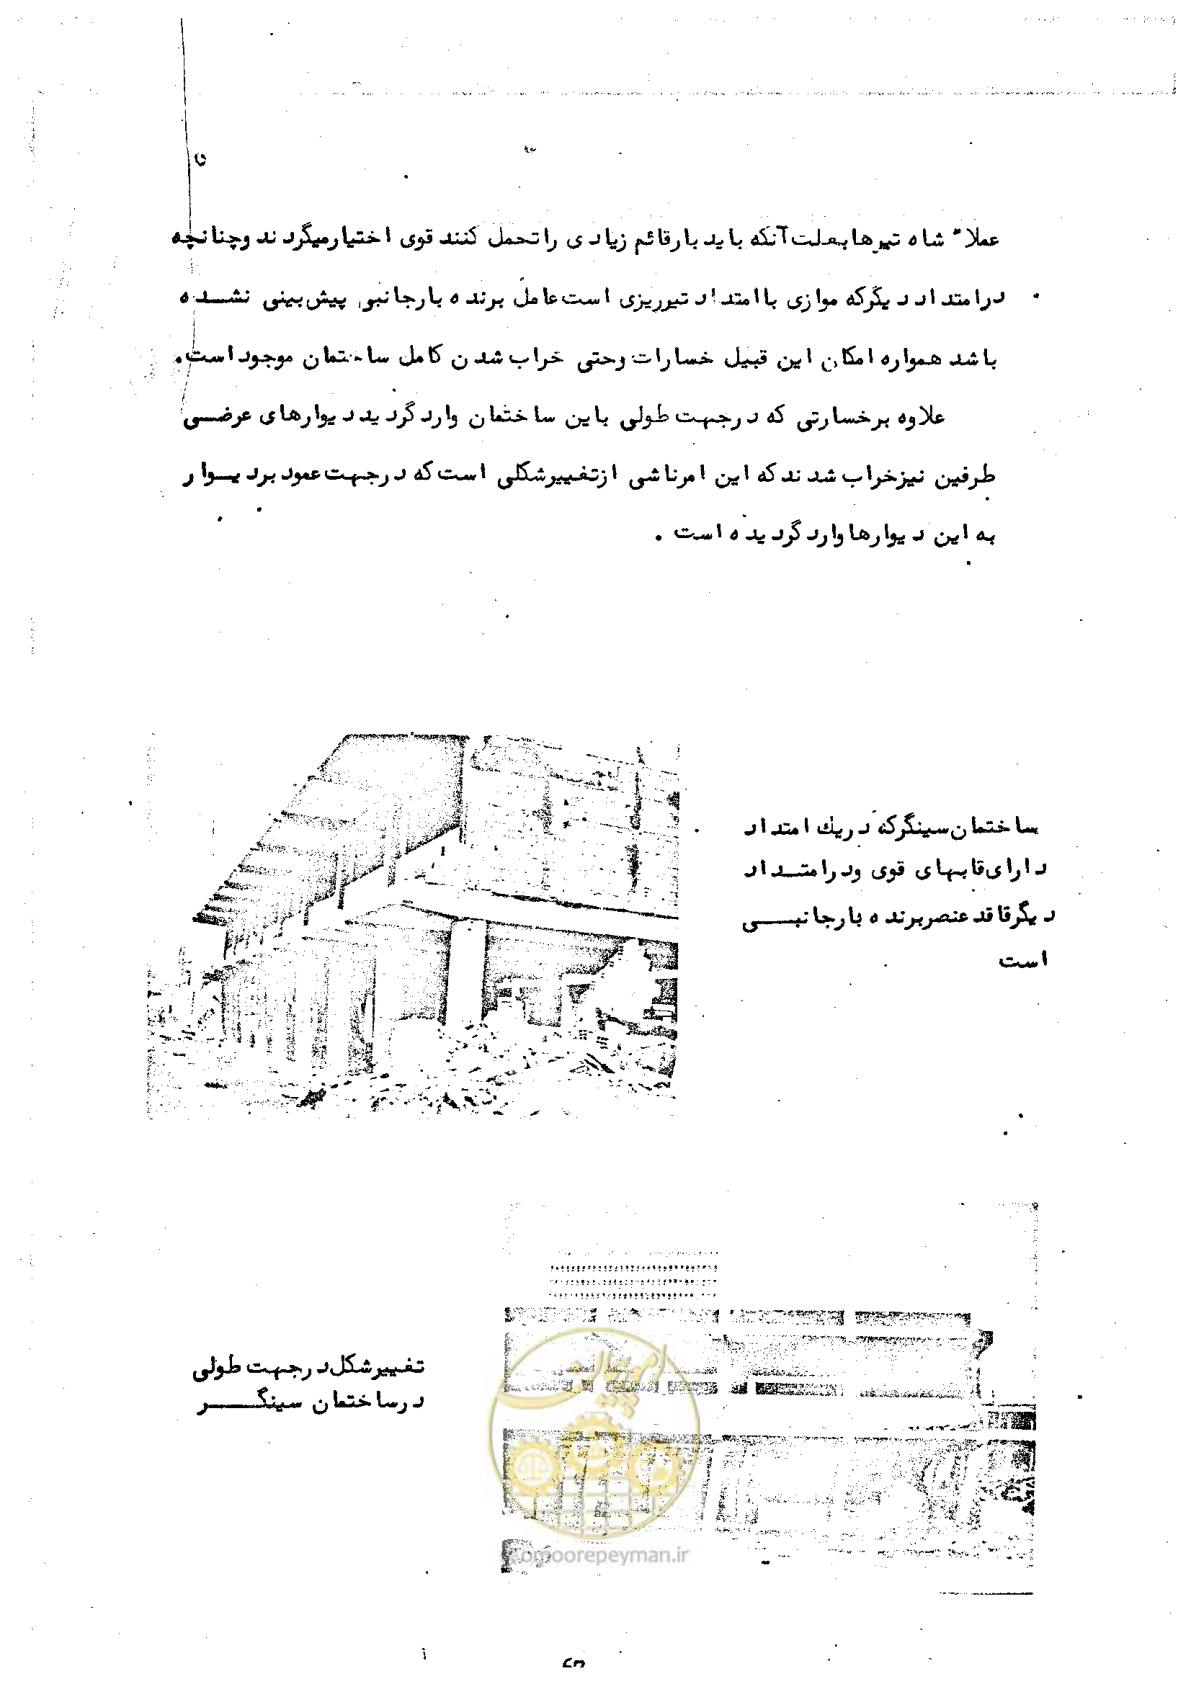 عملا" شاه تیرها بعلت آنکه باید بارقائم زیادی را تحمل کنند قوی اختیار میگردند وچنانچه
درامتداد دیگرکه موازی با امتداد تیرریزی است عامل برنده بارجانبی پیش‌بینی نشده
باشد همواره امکان این قبیل خسارات وحتی خراب شدن کامل ساختمان موجود است.
علاوه برخسارتی که درجهت طولی باین ساختمان وارد گردید دیوارهای عرضی
طرفین نیزخراب شدند که این امرناشی ازتغییرشکلی است که درجهت عمود بر دیوار
به این دیوارها وارد گردیده است .
ساختمان سینگرکه دریك امتداد
دارای قابهای قوی ودرامتداد
دیگرفاقد عنصربرنده بارجانبی
است
تغییرشکل درجهت طولی
درساختمان سینگر
امور پیمان
omoorepeyman.ir